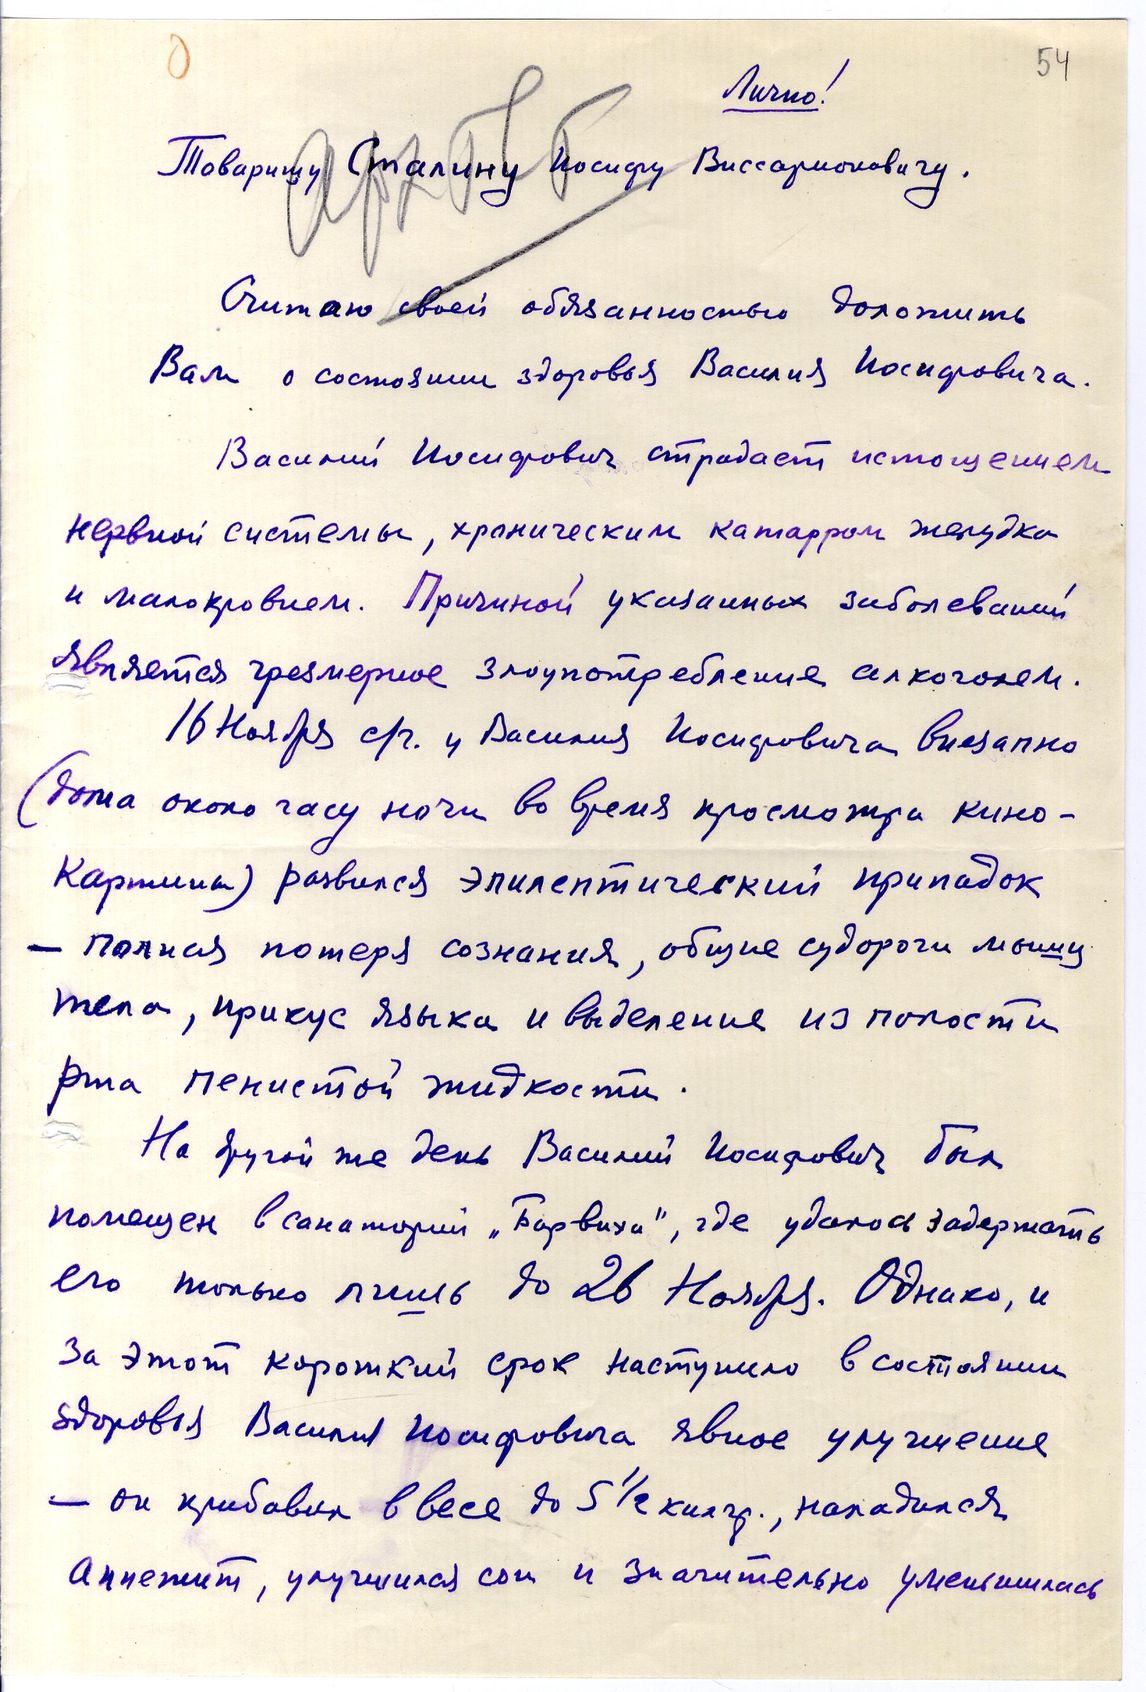 54
Лично!
Товарищу Сталину Иосифу Виссарионовичу.
Считаю своей обязанностью доложить
Вам о состоянии здоровья Василия Иосифовича.
Василий Иосифович страдает истощением
нервной системы, хроническим катарром желудка
и малокровием. Причиной указанных заболеваний
является чрезмерное злоупотребление алкоголем.
16 Ноября с/г. у Василия Иосифовича внезапно
(дома около часу ночи во время просмотра кино-
картины) развился эпилептический припадок
— полная потеря сознания, общие судороги мышц
тела, прикус языка и выделение из полости
рта пенистой жидкости.
На другой же день Василий Иосифович был
помещен в санаторий „Барвиха", где удалось задержать
его только лишь до 26 Ноября. Однако, и
за этот короткий срок наступило в состоянии
здоровья Василия Иосифовича явное улучшение
— он прибавил в весе до 5 1/2 килгр., наладился
аппетит, улучшился сон и значительно уменьшилась